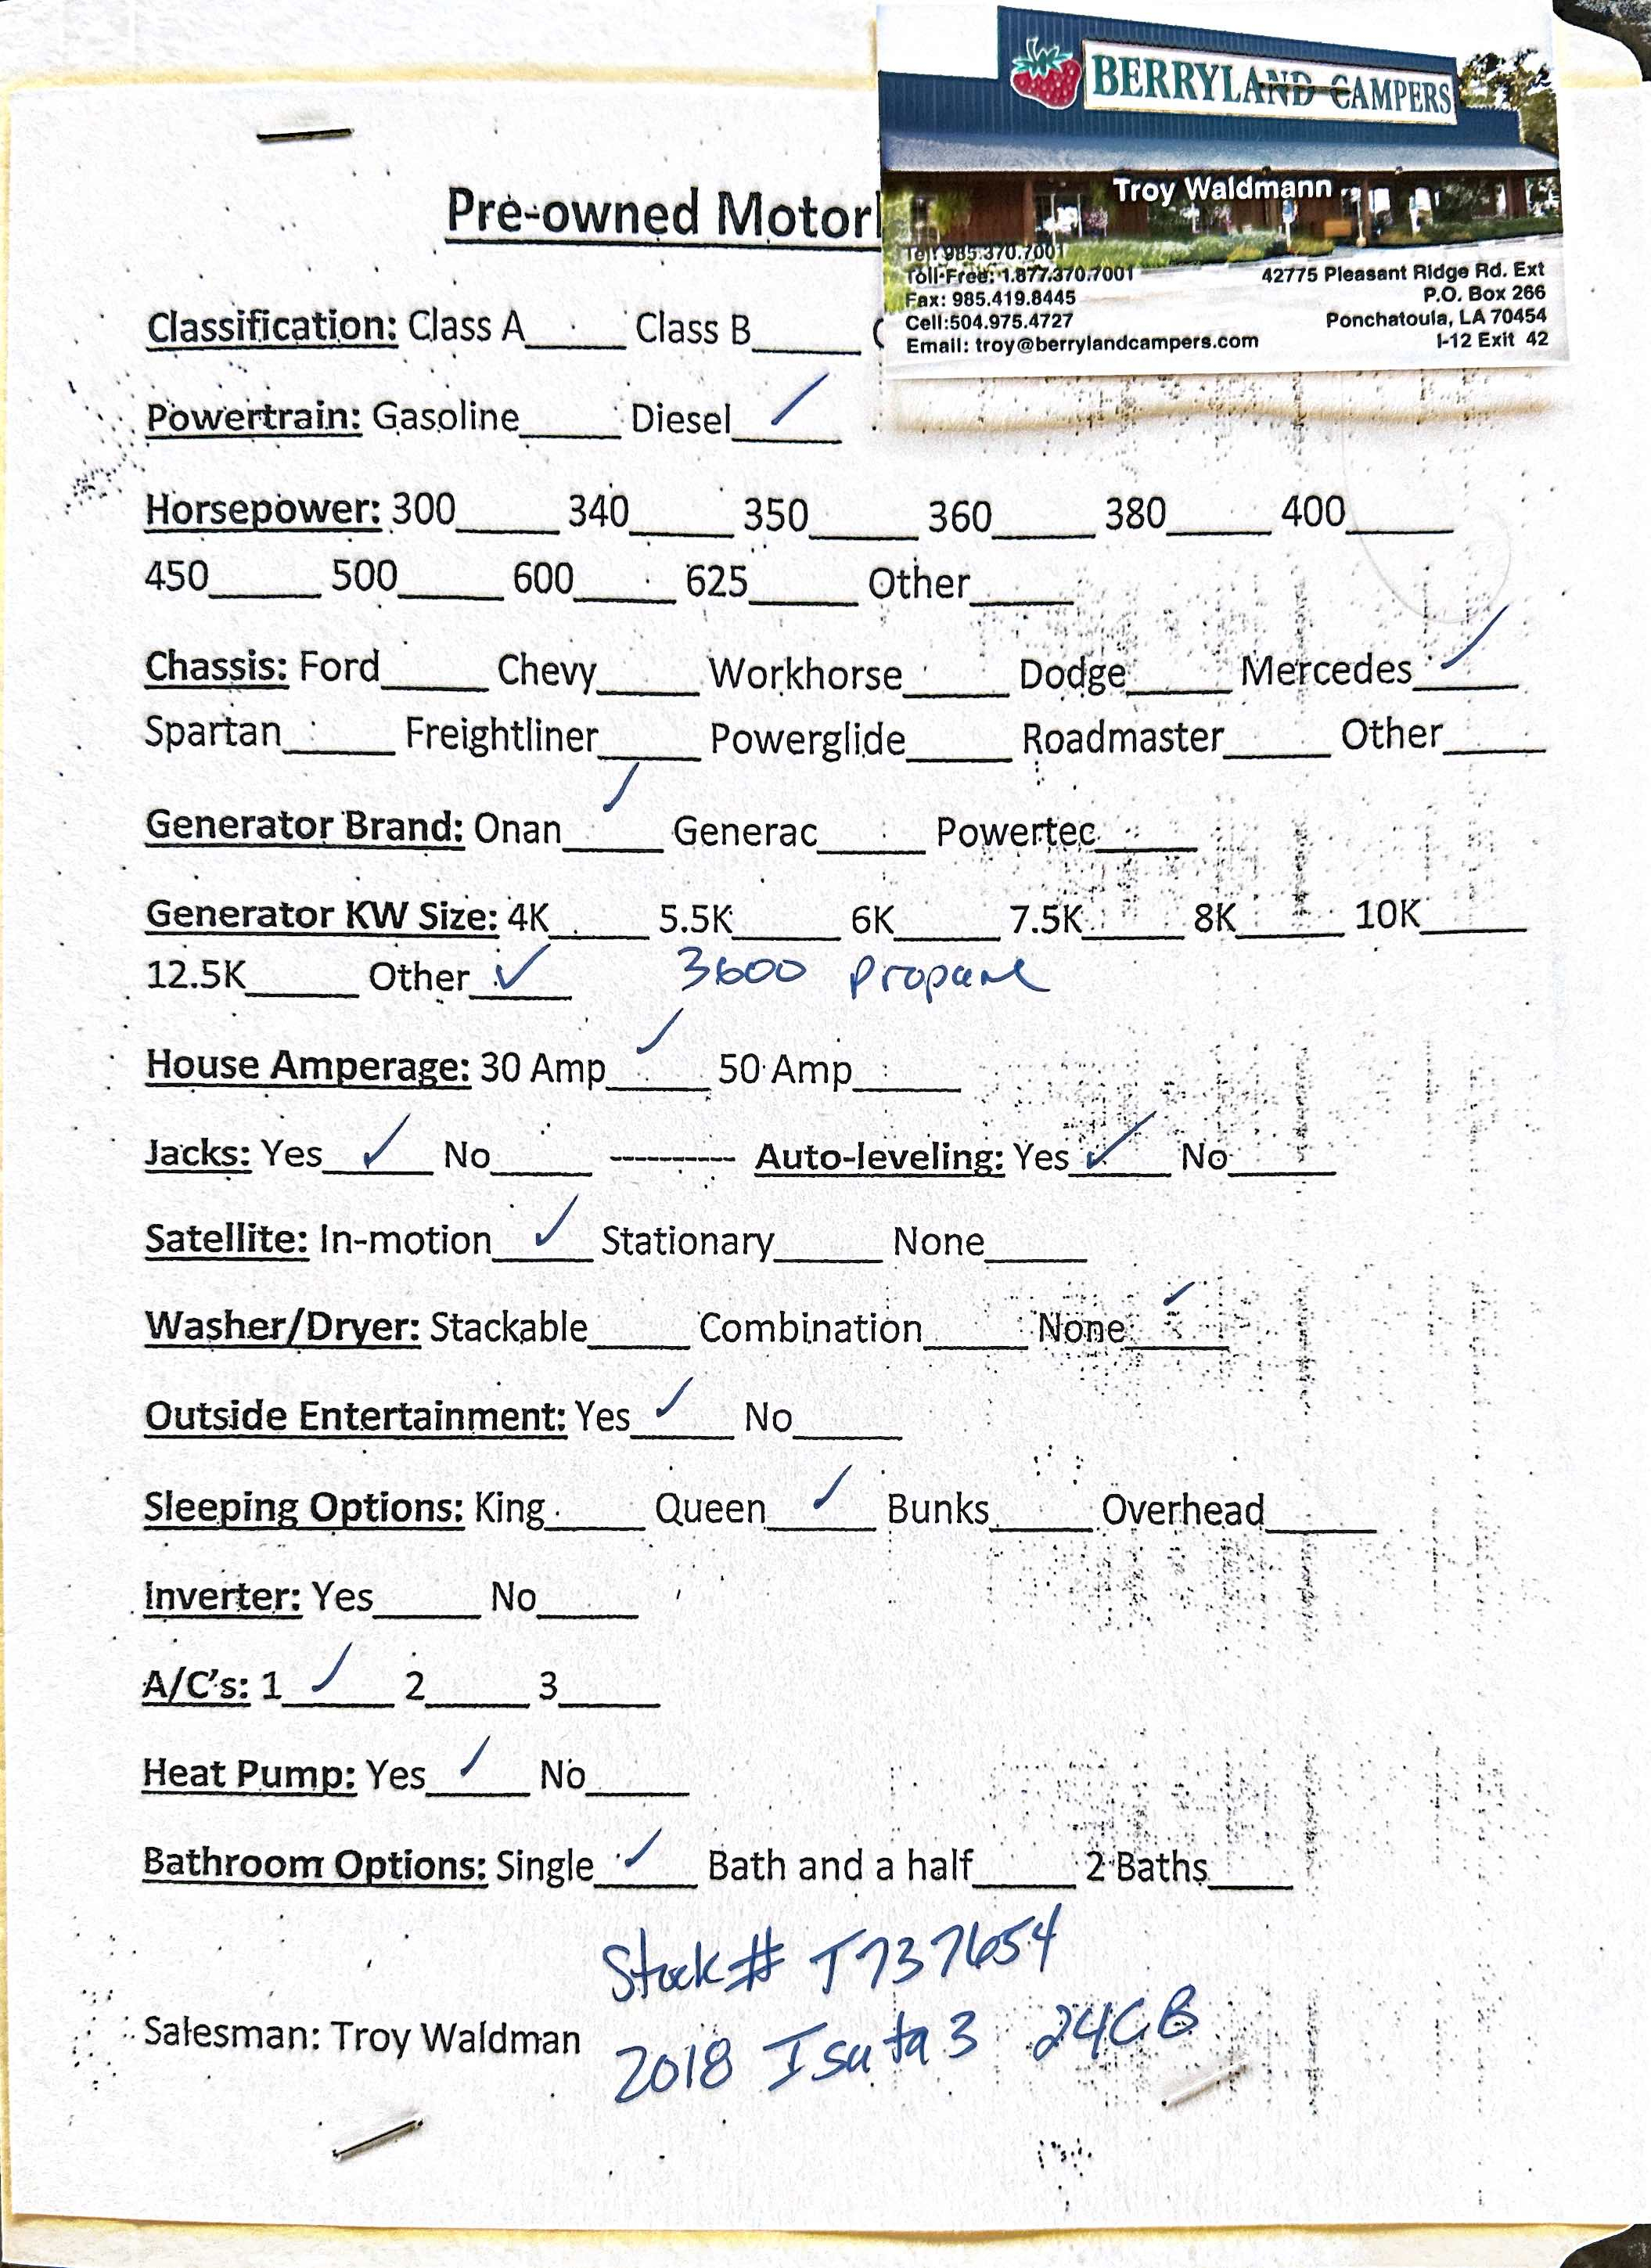 BERRYLAND CAMPERS
Troy Waldmann
Tel: 985.370.7001
Toll-Free: 1.877.370.7001
Fax: 985.419.8445
Cell:504.975.4727
Email: troy@berrylandcampers.com
42775 Pleasant Ridge Rd. Ext
P.O. Box 266
Ponchatoula, LA 70454
I-12 Exit 42
Pre-owned Motor
Classification: Class A_____ Class B_____
Powertrain: Gasoline_____ Diesel__✓__
Horsepower: 300_____ 340_____ 350_____ 360_____ 380_____ 400_____
450_____ 500_____ 600_____ 625_____ Other_____
Chassis: Ford_____ Chevy_____ Workhorse_____ Dodge_____ Mercedes__✓__
Spartan_____ Freightliner_____ Powerglide_____ Roadmaster_____ Other_____
Generator Brand: Onan__✓__ Generac_____ Powertec_____
Generator KW Size: 4K_____ 5.5K_____ 6K_____ 7.5K_____ 8K_____ 10K_____
12.5K_____ Other__✓__ 3600 Propane
House Amperage: 30 Amp__✓__ 50 Amp_____
Jacks: Yes__✓__ No_____ ---------- Auto-leveling: Yes__✓__ No_____
Satellite: In-motion__✓__ Stationary_____ None_____
Washer/Dryer: Stackable_____ Combination_____ None__✓__
Outside Entertainment: Yes__✓__ No_____
Sleeping Options: King_____ Queen__✓__ Bunks_____ Overhead_____
Inverter: Yes_____ No_____
A/C's: 1__✓__ 2_____ 3_____
Heat Pump: Yes__✓__ No_____
Bathroom Options: Single__✓__ Bath and a half_____ 2 Baths____
Stock# T737654
Salesman: Troy Waldman
2018 Isata 3 24CB